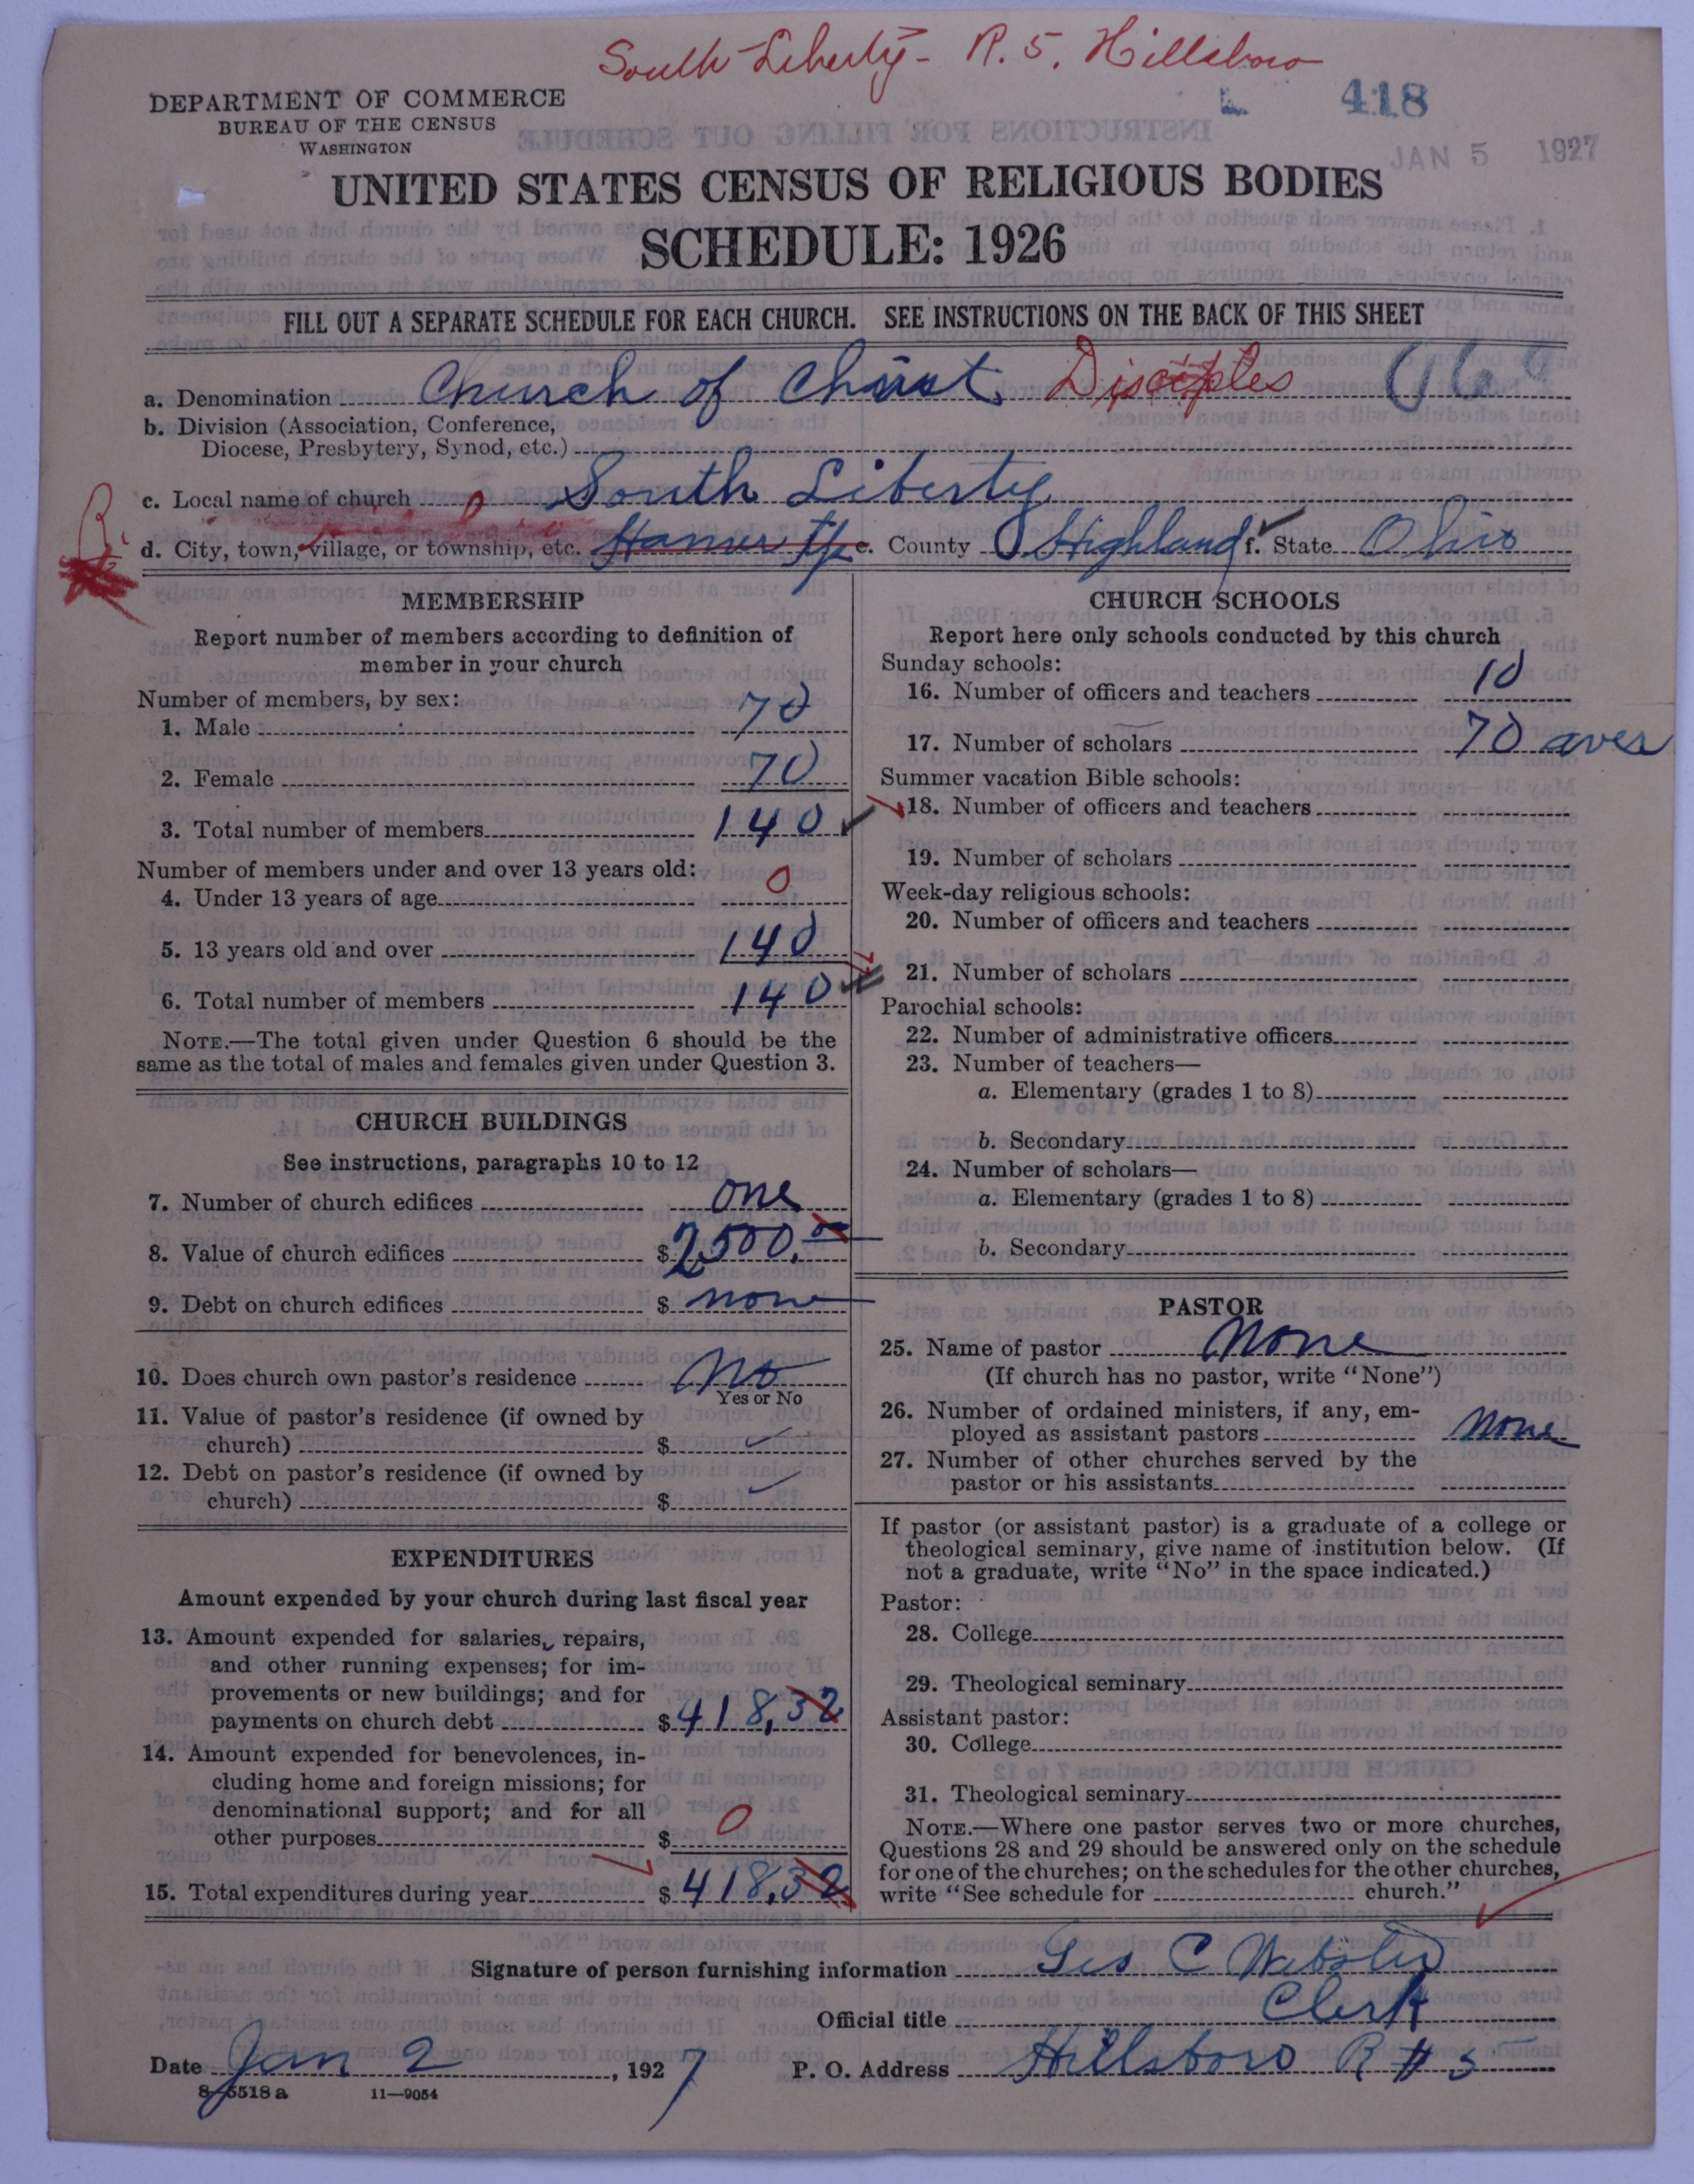 South Liberty - R. 5, Hillsboro
418
JAN 5 1927
DEPARTMENT OF COMMERCE
BUREAU OF THE CENSUS
WASHINGTON
UNITED STATES CENSUS OF RELIGIOUS BODIES
SCHEDULE: 1926
FILL OUT A SEPARATE SCHEDULE FOR EACH CHURCH. SEE INSTRUCTIONS ON THE BACK OF THIS SHEET
a. Denomination Church of Christ. Disciples
b. Division (Association, Conference,
Diocese, Presbytery, Synod, etc.)
c. Local name of church South Liberty
d. City, town, village, or township, etc. Hamer Tp e. County Highland f. State Ohio
R.
MEMBERSHIP
Report number of members according to definition of
member in your church
Number of members, by sex:
1. Male 70
2. Female 70
3. Total number of members 140
Number of members under and over 13 years old:
4. Under 13 years of age 0
5. 13 years old and over 140
6. Total number of members 140
NOTE.—The total given under Question 6 should be the
same as the total of males and females given under Question 3.
CHURCH BUILDINGS
See instructions, paragraphs 10 to 12
7. Number of church edifices one
8. Value of church edifices $ 2500.00
9. Debt on church edifices $ none
10. Does church own pastor's residence No
Yes or No
11. Value of pastor's residence (if owned by
church) $
12. Debt on pastor's residence (if owned by
church) $
EXPENDITURES
Amount expended by your church during last fiscal year
13. Amount expended for salaries, repairs,
and other running expenses; for im-
provements or new buildings; and for
payments on church debt $ 418,32
14. Amount expended for benevolences, in-
cluding home and foreign missions; for
denominational support; and for all
other purposes $ 0
15. Total expenditures during year $ 418,32
CHURCH SCHOOLS
Report here only schools conducted by this church
Sunday schools:
16. Number of officers and teachers 10
17. Number of scholars 70 aver
Summer vacation Bible schools:
18. Number of officers and teachers
19. Number of scholars
Week-day religious schools:
20. Number of officers and teachers
21. Number of scholars
Parochial schools:
22. Number of administrative officers
23. Number of teachers—
a. Elementary (grades 1 to 8)
b. Secondary
24. Number of scholars—
a. Elementary (grades 1 to 8)
b. Secondary
PASTOR
25. Name of pastor None
(If church has no pastor, write "None")
26. Number of ordained ministers, if any, em-
ployed as assistant pastors None
27. Number of other churches served by the
pastor or his assistants
If pastor (or assistant pastor) is a graduate of a college or
theological seminary, give name of institution below. (If
not a graduate, write "No" in the space indicated.)
Pastor:
28. College
29. Theological seminary
Assistant pastor:
30. College
31. Theological seminary
NOTE.—Where one pastor serves two or more churches,
Questions 28 and 29 should be answered only on the schedule
for one of the churches; on the schedules for the other churches,
write "See schedule for church."
Signature of person furnishing information C Webster
Official title Clerk
Date Jan 2, 1927 P. O. Address Hillsboro R # 5
8-5518a 11—9054